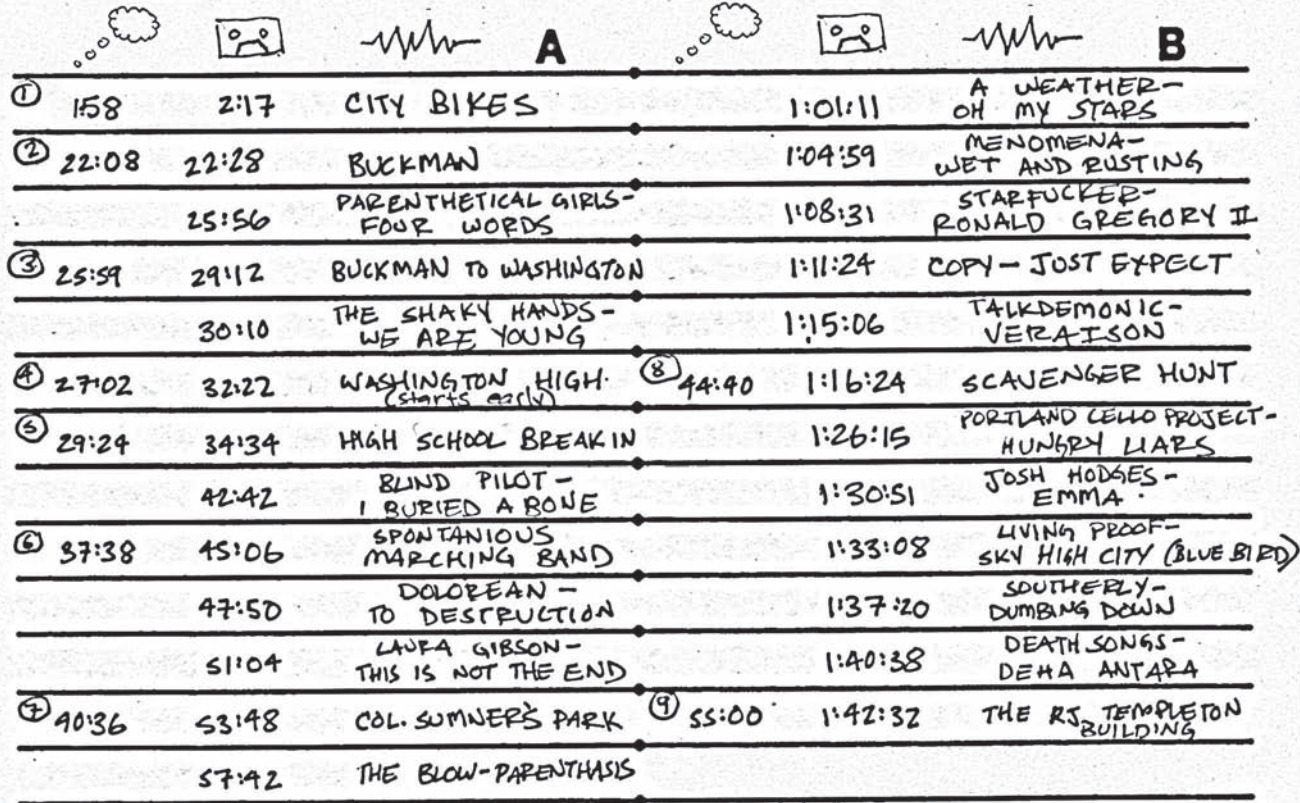 A
① 1:58 2:17 CITY BIKES
② 22:08 22:28 BUCKMAN
25:56 PARENTHETICAL GIRLS-
FOUR WORDS
③ 25:59 29:12 BUCKMAN TO WASHINGTON
30:10 THE SHAKY HANDS-
WE ARE YOUNG
④ 27:02 32:22 WASHINGTON HIGH.
(starts early)
⑤ 29:24 34:34 HIGH SCHOOL BREAKIN
42:42 BLIND PILOT-
I BURIED A BONE
⑥ 37:38 45:06 SPONTANIOUS
MARCHING BAND
47:50 DOLOREAN-
TO DESTRUCTION
51:04 LAURA GIBSON-
THIS IS NOT THE END
⑦ 40:36 53:48 COL. SUMNER'S PARK
57:42 THE BLOW-PARENTHASIS
B
1:01:11 A WEATHER-
OH MY STARS
1:04:59 MENOMENA-
WET AND RUSTING
1:08:31 STARFUCKER-
RONALD GREGORY II
1:11:24 COPY-JUST EXPECT
1:15:06 TALKDEMONIC-
VERAISON
⑧ 44:40 1:16:24 SCAVENGER HUNT
1:26:15 PORTLAND CELLO PROJECT-
HUNGRY LIARS
1:30:51 JOSH HODGES-
EMMA
1:33:08 LIVING PROOF-
SKY HIGH CITY (BLUE BIRD)
1:37:20 SOUTHERLY-
DUMBING DOWN
1:40:38 DEATH SONGS-
DEHA ANTARA
⑨ 55:00 1:42:32 THE RJ. TEMPLETON
BUILDING